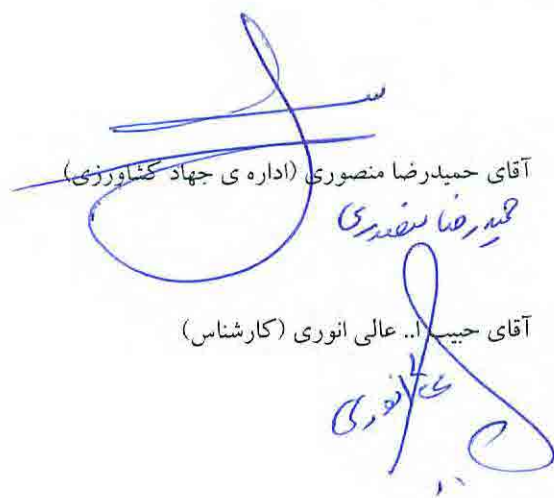 آقای حمیدرضا منصوری (اداره ی جهاد کشاورزی)
حمیدرضا منصوری
آقای حبیب ا.. عالی انوری (کارشناس)
عالی انوری